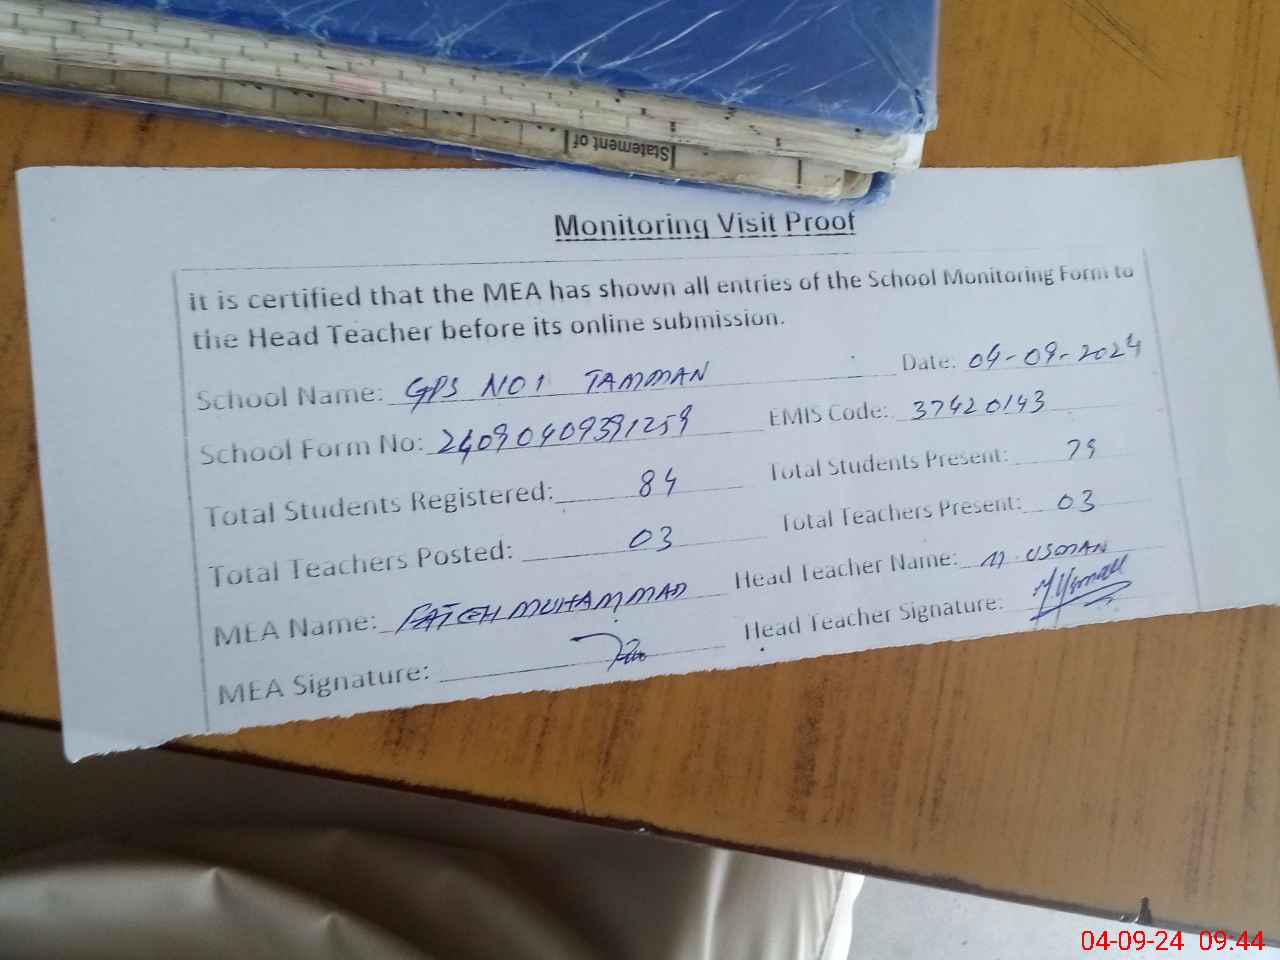 Statement of
Monitoring Visit Proof
it is certified that the MEA has shown all entries of the School Monitoring Form to
the Head Teacher before its online submission.
School Name: GPS NO1 TAMMAN Date: 04-09-2024
School Form No: 24090409391259 EMIS Code: 37420143
Total Students Registered: 84 Total Students Present: 79
Total Teachers Posted: 03 Total Teachers Present: 03
MEA Name: FATEH MUHAMMAD Head Teacher Name: M. USMAN
MEA Signature: Head Teacher Signature: M Usman
04-09-24 09:44